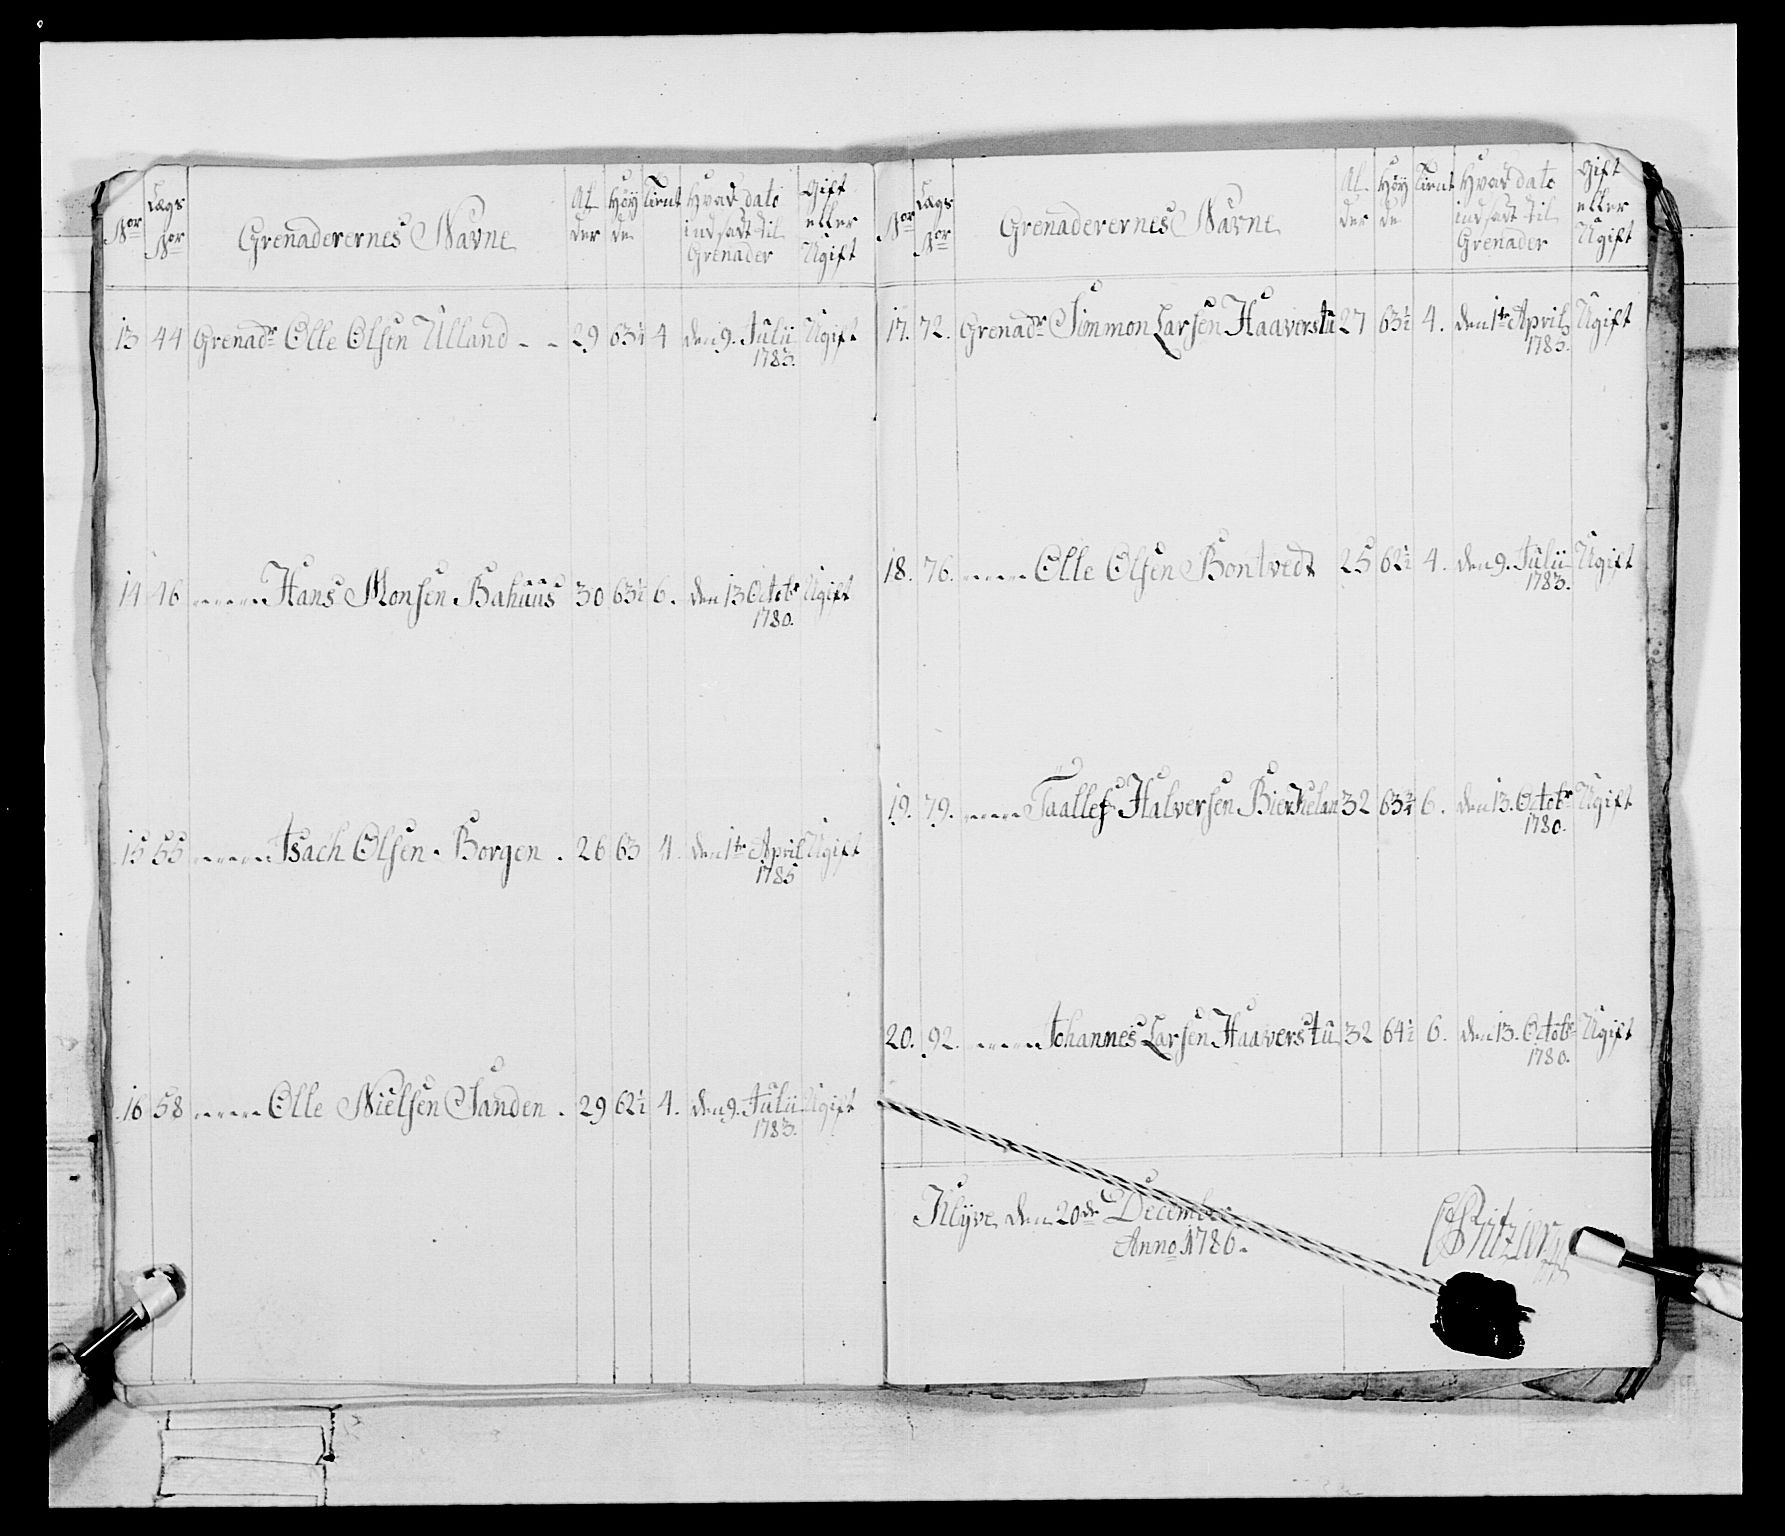 Nor Lægs Nor Grenaderernes Navne Alder Høyde tient Hvad dato indsadt til Grenader Gift eller Ugift
13 44 Grenadr Olle Olsen Ulland - - 29 63½ 4 den 9. Julii 1783. Ugift
14 46 Hans Monsen Bahuus 30 63½ 6. den 13 Octobr 1780. Ugift
15 55 Isach Olsen. Borgen. 26 63 4. den 1te April 1785 Ugift
16 58 Olle Nielsen Sanden. 29 62½ 4. den 9. Julii 1783. Ugift
Nor Lægs Nor Grenaderernes Navne Alder Høyde tient Hvad dato indsadt til Grenader Gift eller Ugift
17. 72. Grenadr Simmon Larsen Haaverstu 27 63½ 4. den 1te April 1785. Ugift
18. 76. Olle Olsen Bontvedt 25 62½ 4. den 9. Julii 1783. Ugift
19. 79. Taallef Halversen 32 6. den 13. Octobr 1780. Ugift
20. 92. Johannes Larsen Haaverstu 32 64½ 6. den 13. Octobr 1780. Ugift
Klyve den 20de December
Anno 1786.